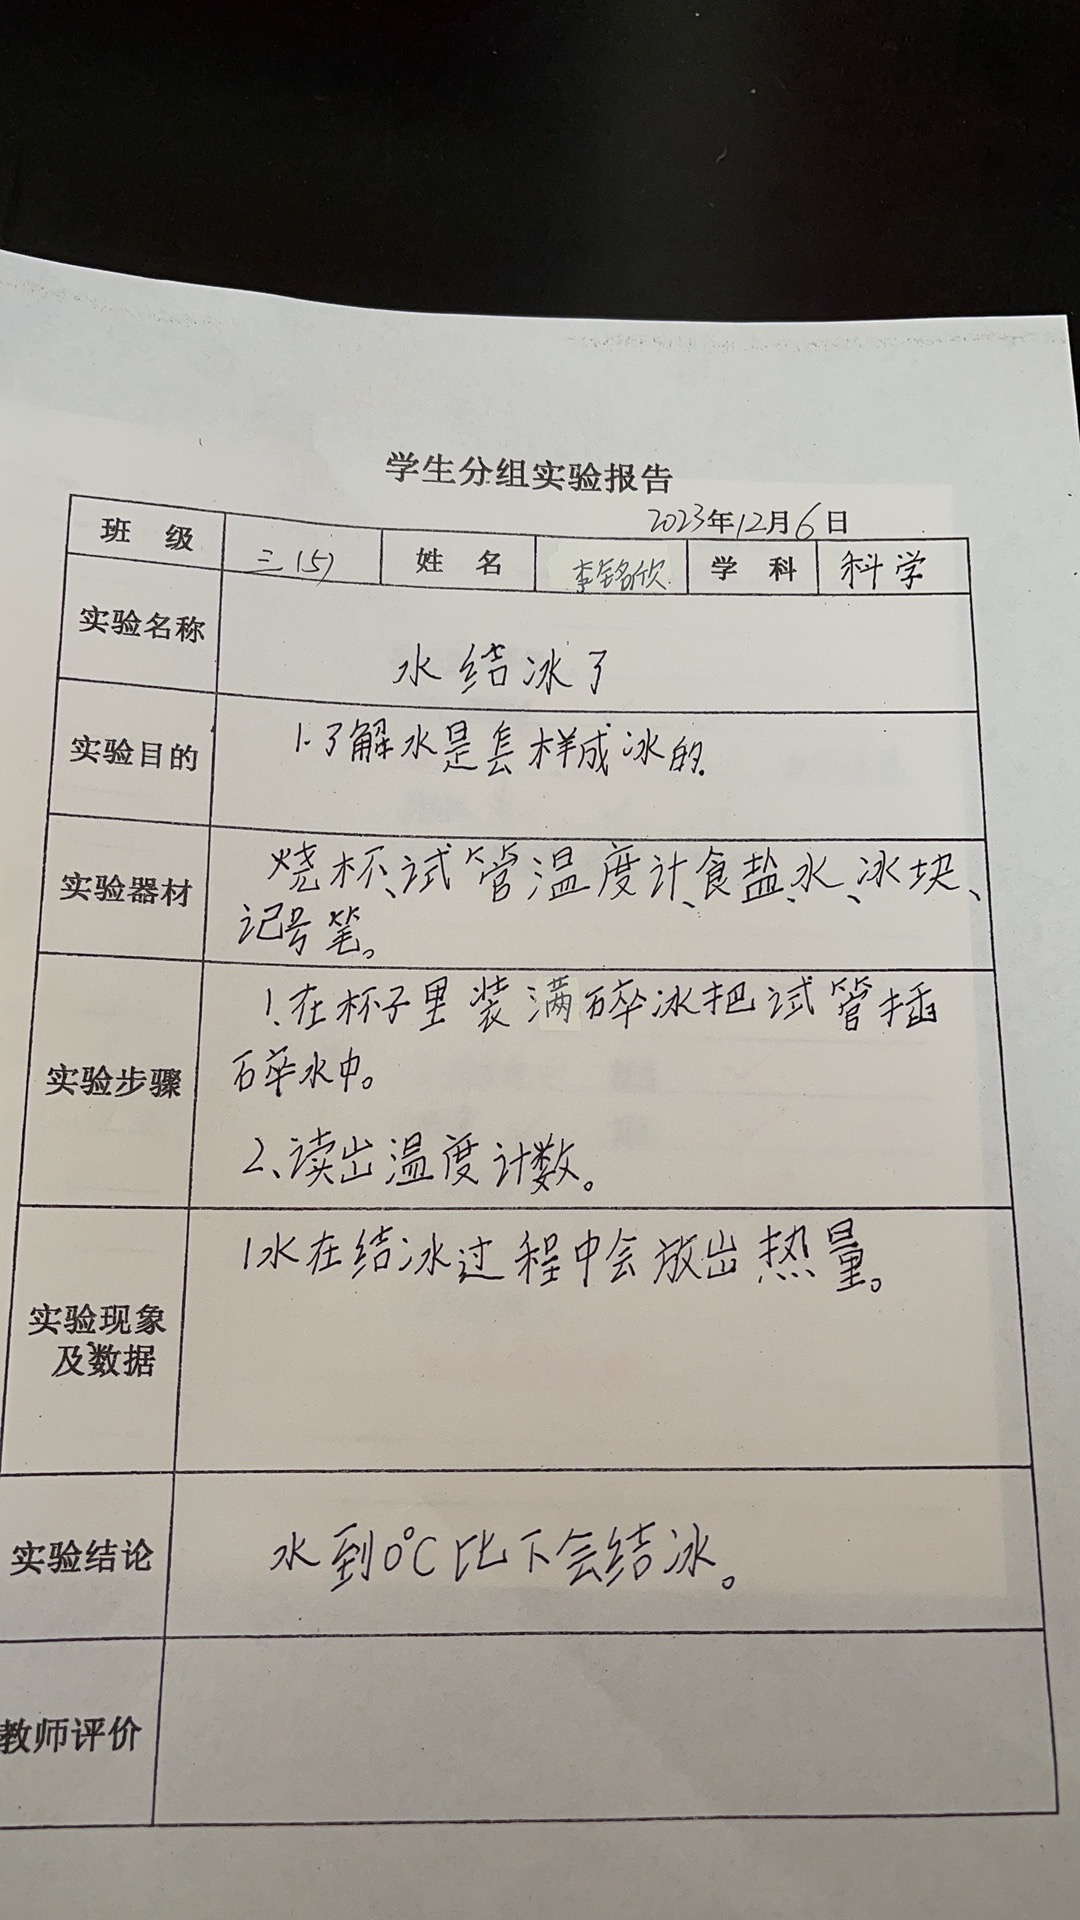 学生分组实验报告
2023年12月6日
班 级 三(5) 姓 名 李铭欣 学 科 科学
实验名称 水结冰了
实验目的 1.了解水是怎样成冰的.
实验器材 烧杯、试管温度计、食盐、水、冰块、
记号笔。
实验步骤 1.在杯子里装满碎冰把试管插
碎冰中。
2、读出温度计数。
实验现象
及数据 1水在结冰过程中会放出热量。
实验结论 水到0℃比下会结冰。
教师评价